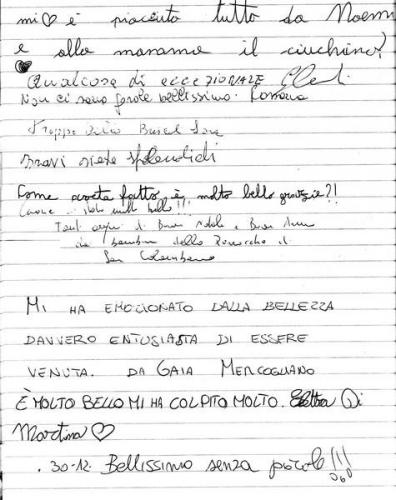 mi ♡ è piaciuto tutto da Noemi
e alla mamma il ciuchino!
Qualcosa di eccezionale
Non ci sono parole bellissimo. Romana
Troppo
Bravi siete splendidi
Come avete fatto, è molto bello grazie?!
molto bello!!!
Tanti auguri di Buon Natale e Buon Anno
dai bambini della Parrocchia di
San Colombano
MI HA EMOZIONATO DALLA BELLEZZA
DAVVERO ENTUSIASTA DI ESSERE
VENUTA. DA GAIA MERCOGLIANO
È MOLTO BELLO MI HA COLPITO MOLTO. Di
Martina ♡
. 30-12. Bellissimo senza parole!!!